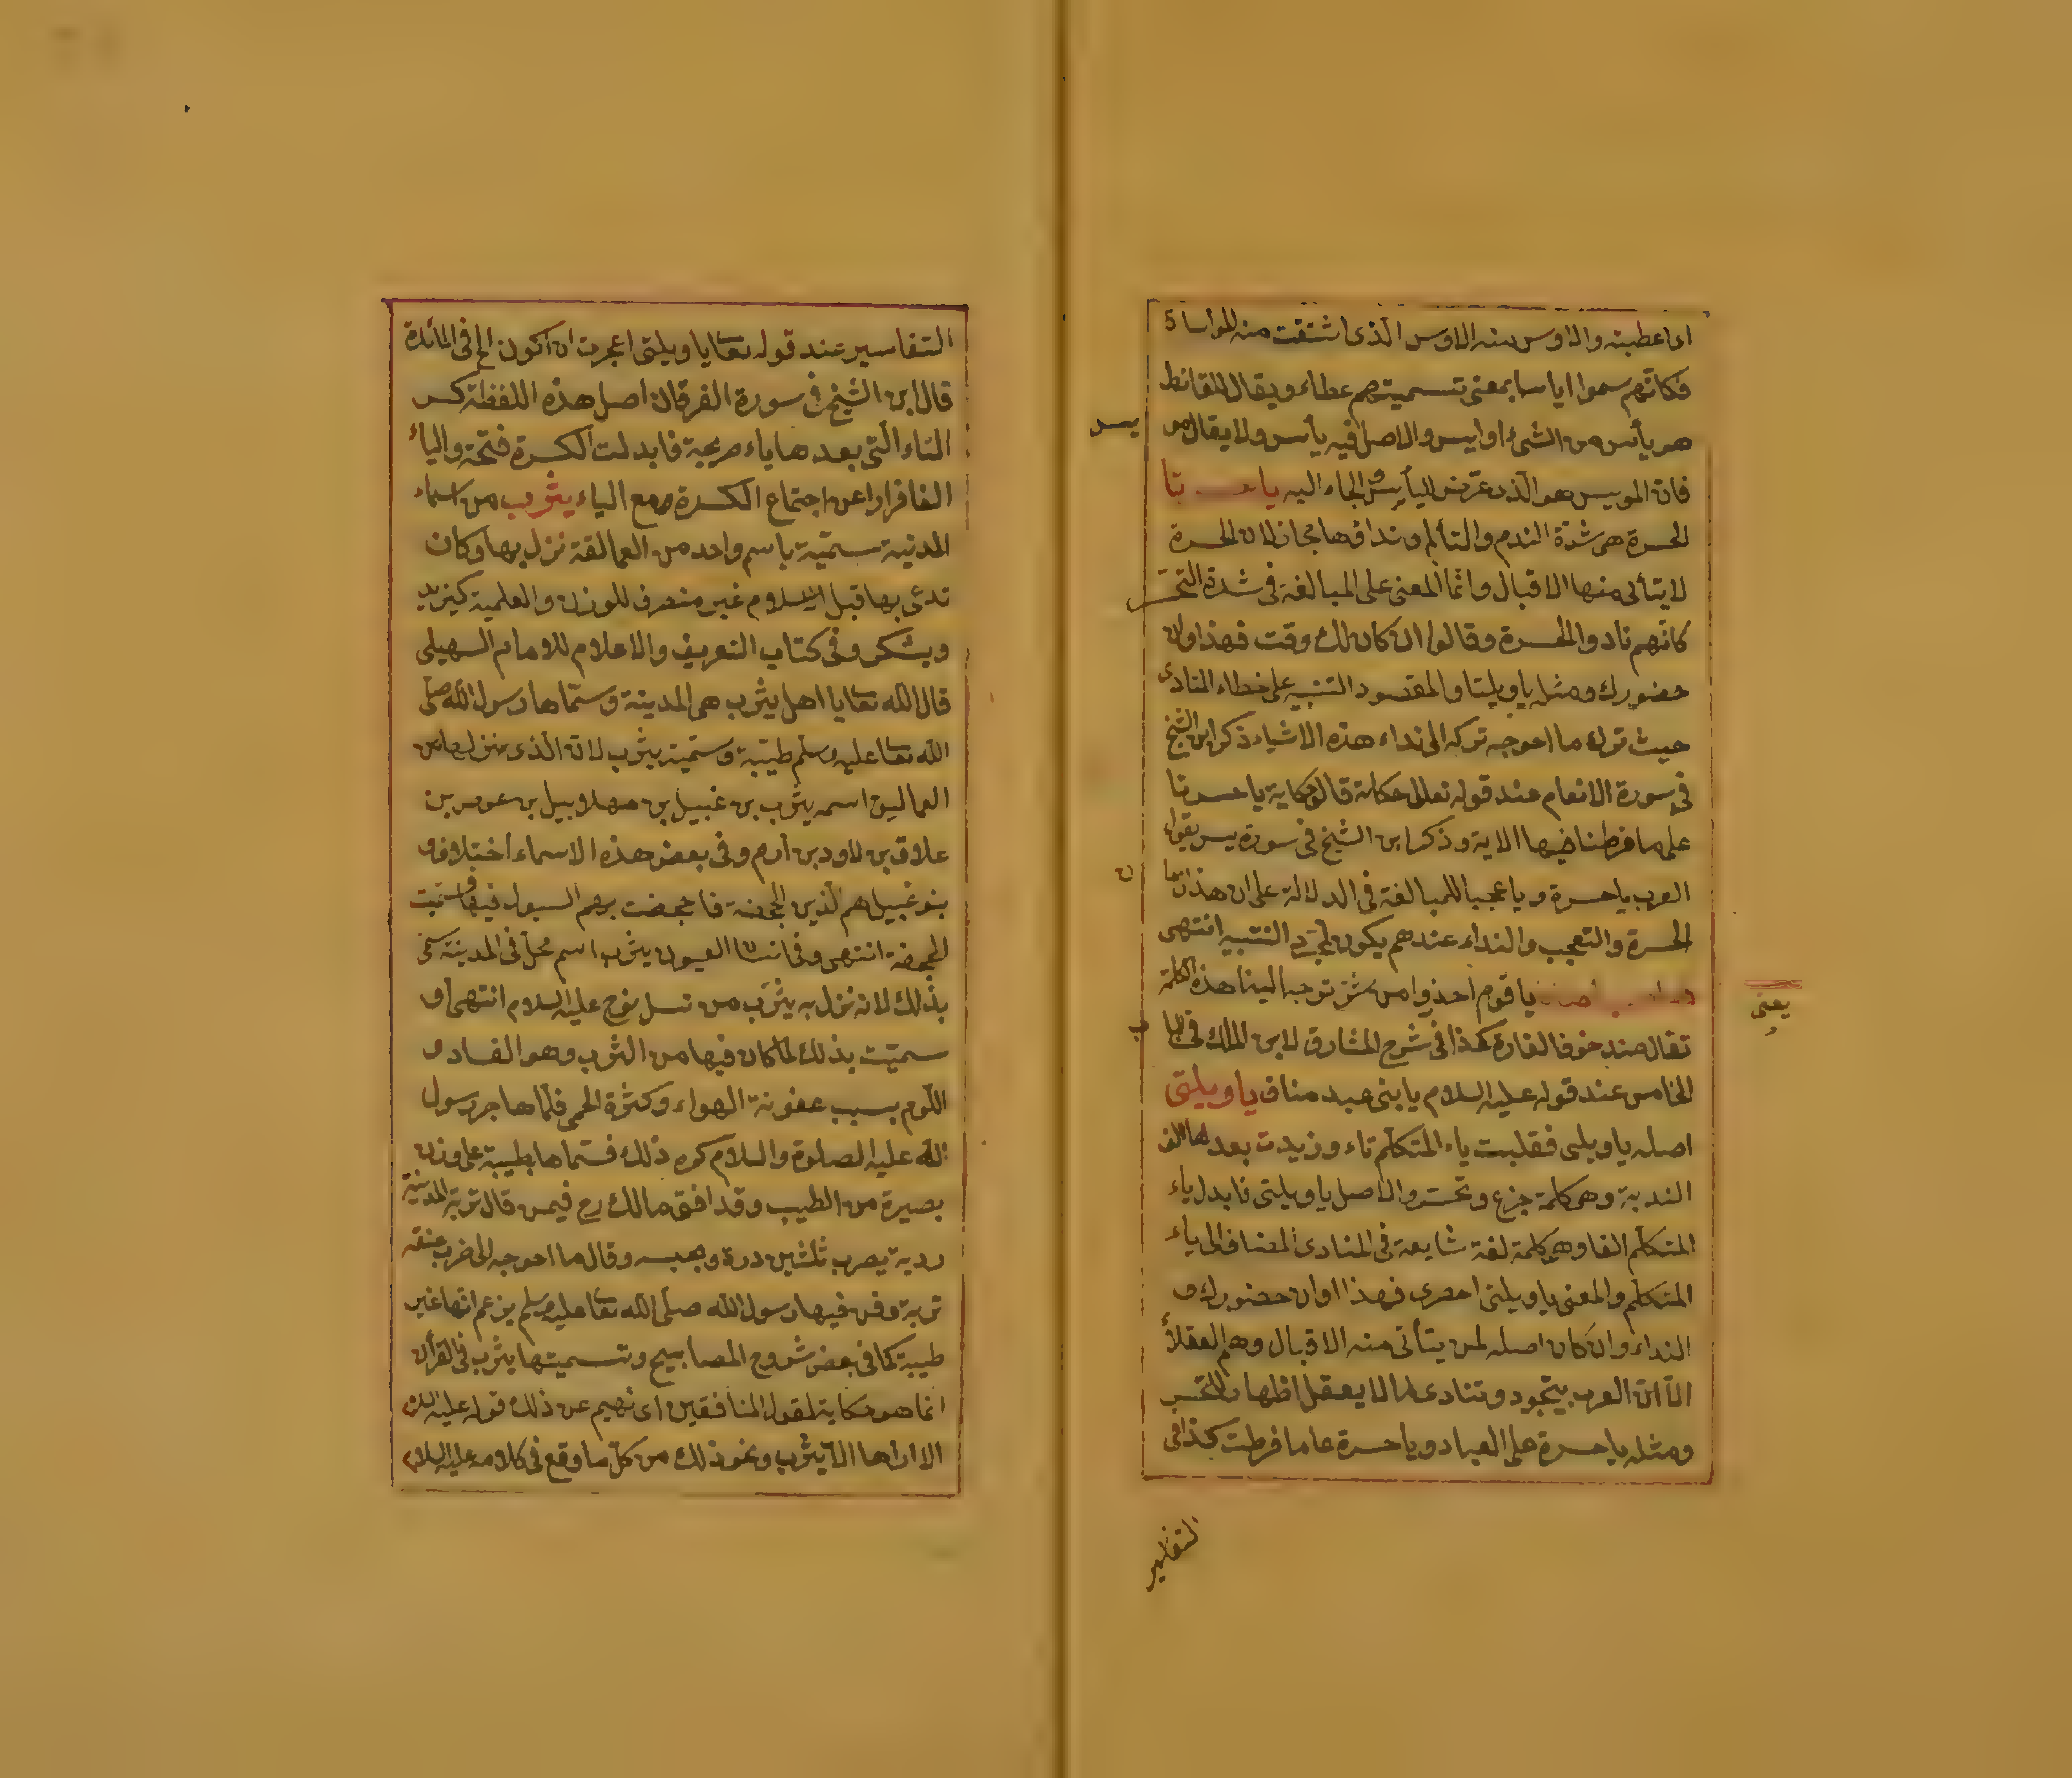 اى اعطيته والاوس منه الاوس الذى اشتقت منه المواساة
فكانهم سموا اياسا بمعنى تسميتهم عطاء ويقال للقانط
هو يأس من الشئ او ايس والاصل فيه يأس ولا يقال مو
يس
فان المويس هو الذى عرض لليأس الجاء اليه يا
الحسرة هى شدة الندم والتألم ونداؤها مجاز لان الحسرة
لا يتأتى منها الاقبال وانما المعنى على المبالغة فى شدة التحسر
كانهم نادوا الحسرة وقالوا ان كان لك وقت فهذا اوان
حضورك ومثله يا ويلتا والمقصود التنبيه على خطاء المنادى
حيث ترك ما احوجه تركه الى نداء هذه الاشياء ذكر ابن الشيخ
فى سورة الانعام عند قوله تعالى حكاية قالوا يا حسرتنا
على ما فرطنا فيها الاية وذكر ابن الشيخ فى سورة يس يقول
العرب يا حسرة ويا عجبا للمبالغة فى الدلالة على ان هذا
الحسرة والتعجب والنداء عندهم يكون لمجرد التنبيه انتهى
يا قوم احذروا من شر توجه الينا هذه الكلمة
يعنى
تقال عند خوف الغارة كذا فى شرح المشارق لابن الملك فى البا
ب
الخامس عند قوله عليه السلام يا بنى عبد مناف يا ويلتى
اصله يا ويلى فقلبت ياء المتكلم تاء وزيدت بعدها الف
الندبة وهى كلمة جزع وتحسر والاصل يا ويلتى فابدل ياء
المتكلم الفا وهى كلمة لغة شايعة فى المنادى المضاف الى ياء
المتكلم والمعنى يا ويلتى احضرى فهذا اوان حضورك و
النداء وان كان اصله لمن يتأتى منه الاقبال وهم العقلاء
الا ان العرب يتجود وتنادى ما لا يعقل اظهارا للتحسر
ومثله يا حسرة على العباد ويا حسرة على ما فرطت كذا فى
التفاسير
التفاسير عند قوله تعا يا ويلتى اعجزت ان اكون الخ فى المائدة
قال ابن الشيخ فى سورة الفرقان اصل هذه اللفظة كسر
التاء التى بعدها ياء صريحة فابدلت الكسرة فتحة والياء
الفا فرارا عن اجتماع الكسرة مع الياء يثرب من اسماء
المدنية سميّة باسم واحد من العمالقة نزل بها وكان
تدعى بها قبل الاسلام غير منصرف للوزن والعلمية كيزيد
ويشكر وفى كتاب التعريف والاعلام للامام السهيلى
قال الله تعا يا اهل يثرب هى المدينة وسمّاها رسول الله صلى
الله تعا عليه وسلم طيّبة وسميّت يثرب لان الذى نزلها من
العماليق اسمه يثرب بن عبيل بن مهلابيل بن عوص بن
علاق بن لاود بن ارم وفى بعض هذه الاسماء اختلاف و
بنو عبيل هم الذين الجحفة فاجحفت بهم السيول فيها فسميت
الجحفة انتهى وفى انسا العيون يثرب اسم محل فى المدينة سمى
بذلك لانه نزل به يثرب من نسل نوح عليه السلام انتهى او
سميّت بذلك لما كان فيها من الثرب وهو الفساد و
اللوم بسبب عفونة الهواء وكثرة الحمى فلما هاجر رسول
الله عليه الصلوة والسلام كره ذلك فسمّاها بطيبة على وزن
بصيرة من الطيب وقد افتى مالك رح فيمن قال تربة المدنية
ردية يضرب ثلثين درة وحبسه وقال ما احوجه الى ضرب عنقه
تربة دفن فيها رسول الله صلى الله تعا عليه وسلم يزعم انها غير
طيبة كما فى بعض شروح المصابيح وتسميتها يثرب فى القرأن
انما هو حكاية لقول المنافقين اى نهيهم عن ذلك قوله عليه السلام
الا اراها الا يثرب ونحو ذلك من كل ما وقع فى كلامه عليه السلام